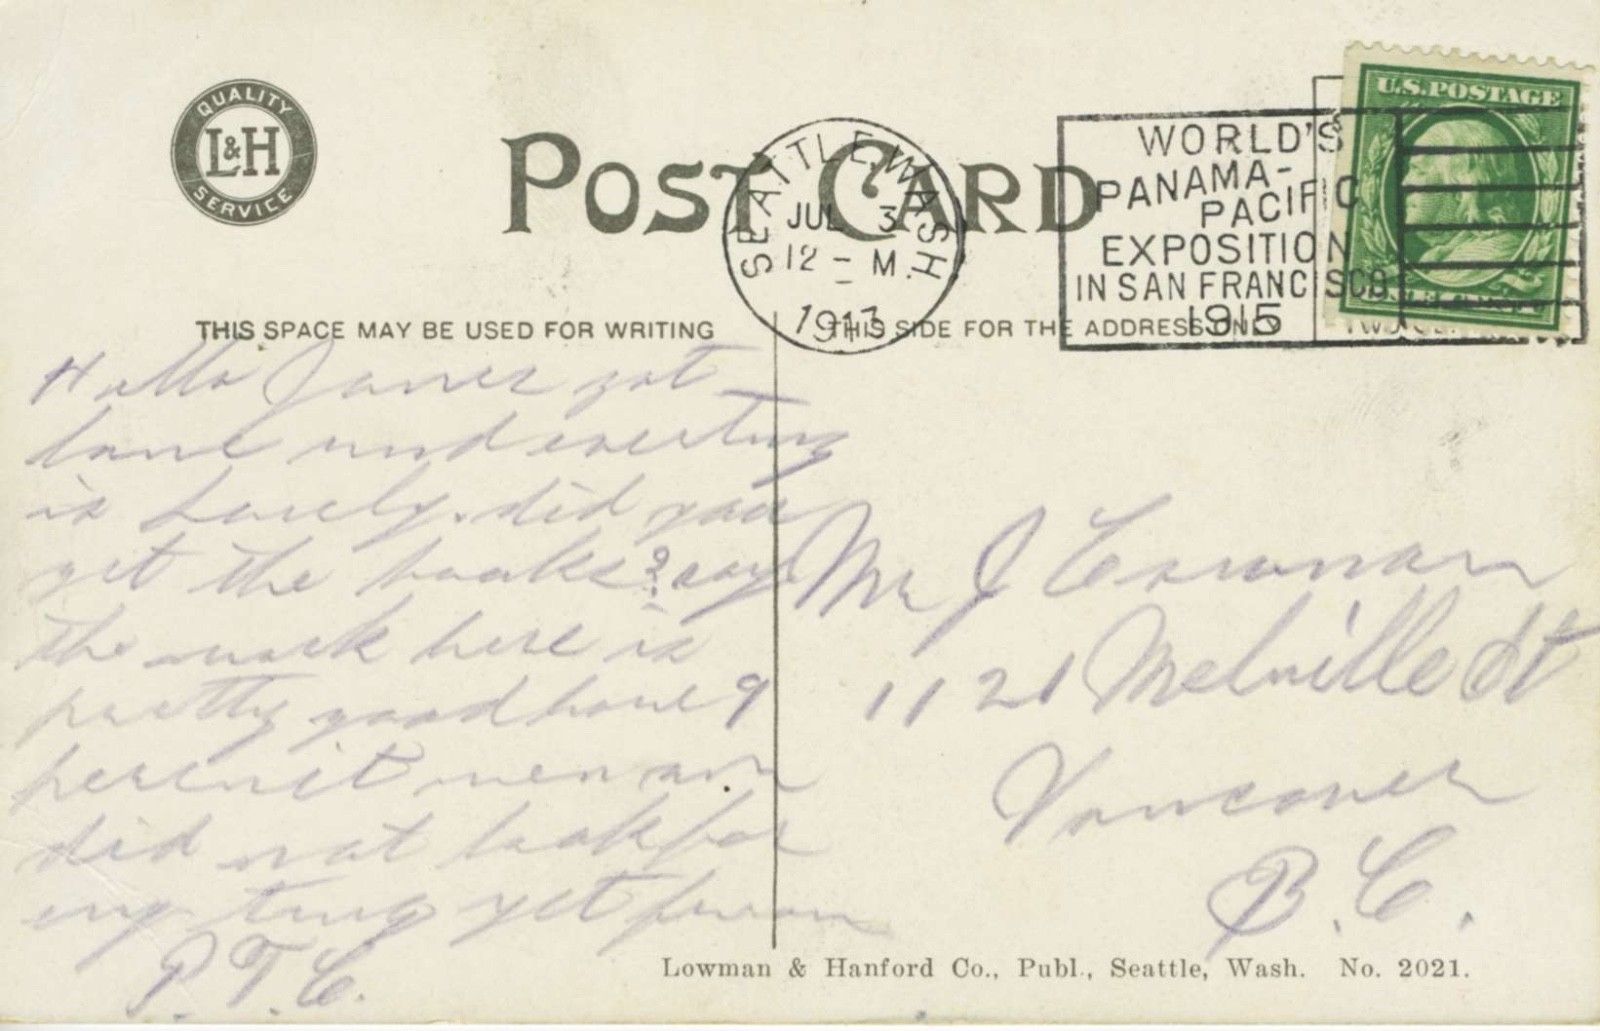 QUALITY
L&H
SERVICE
POST CARD
SEATTLE, WASH.
JUL 3
12 - M.
1913
WORLD'S
PANAMA-
PACIFIC
EXPOSITION
IN SAN FRANCISCO
1915
U.S. POSTAGE
THIS SPACE MAY BE USED FOR WRITING
THIS SIDE FOR THE ADDRESS ONLY
Hallo James got
and
is lovely. did you
get the books? say
the work here is
pretty good have 9
permit men
did not look for
yet
P. T. C.
Mr J
1121 Melville St
Vancouver
B. C.
Lowman & Hanford Co., Publ., Seattle, Wash. No. 2021.